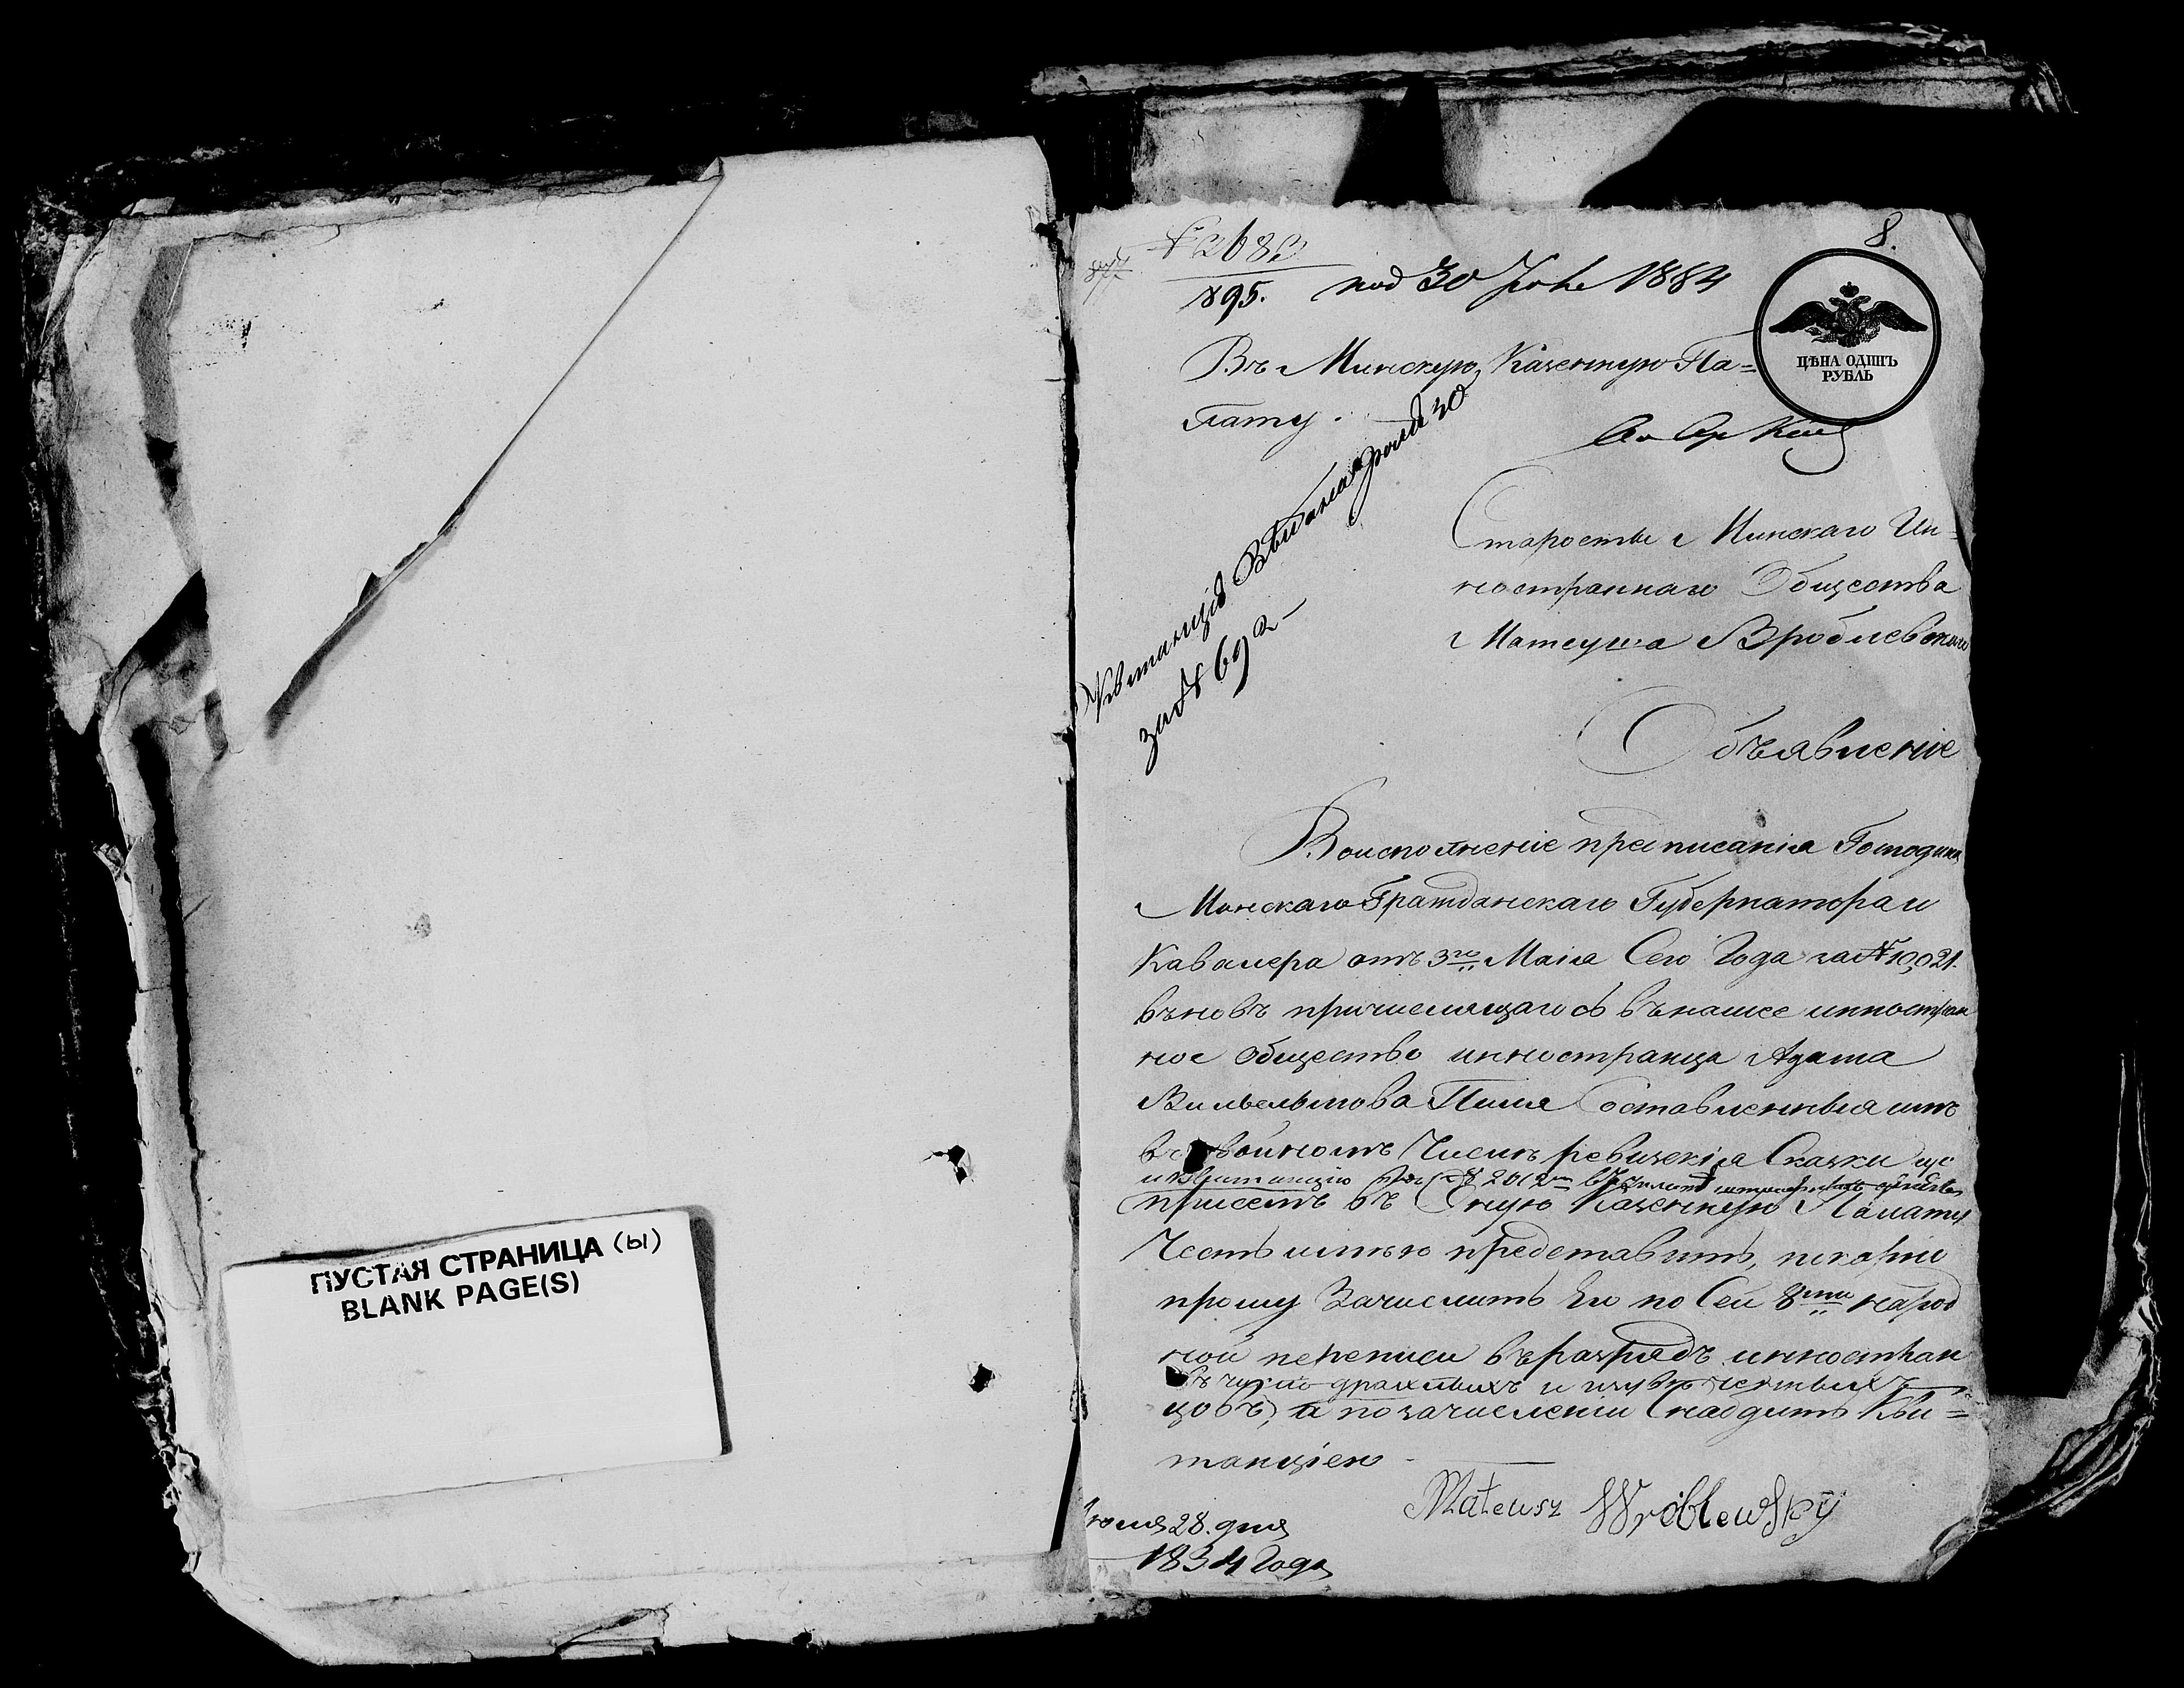 ПУСТАЯ СТРАНИЦА (ы)
BLANK PAGE(S)
8.
877
№ 2683
895. под 30 Июня 1834
ЦѢНА ОДИНЪ
РУБЛЬ
Въ Минскую Казенную Па=
лату.
Квитанція
за № 692
Старосты Минскаго Ин=
ностраннаго Общества
Матеуша Врoблевскаго
Объявленіе
Воисполненіе предписанія Господина
Минскаго Гражданскаго Губернатора и
Кавалера отъ 3го Маія Сего Года за № 10,021.
въновъ причисляющагось вънашее инностран
ное общество инностранца Адама
Вильгельмова Пиля Составленныя имъ
въ двойномъ Числѣ ревизскія Сказки
и квитанцію
присемъ въ Оную Казенную Палату
Честь имѣю представить, покорно
прошу Зачислить Его по Сей 8й народ
ной переписи въразрядъ инностран
цовъ, а позачисленіи Снабдить Кви=
танціею
Mateusz Wróblewsky
Июня 28. дня
1834 Года